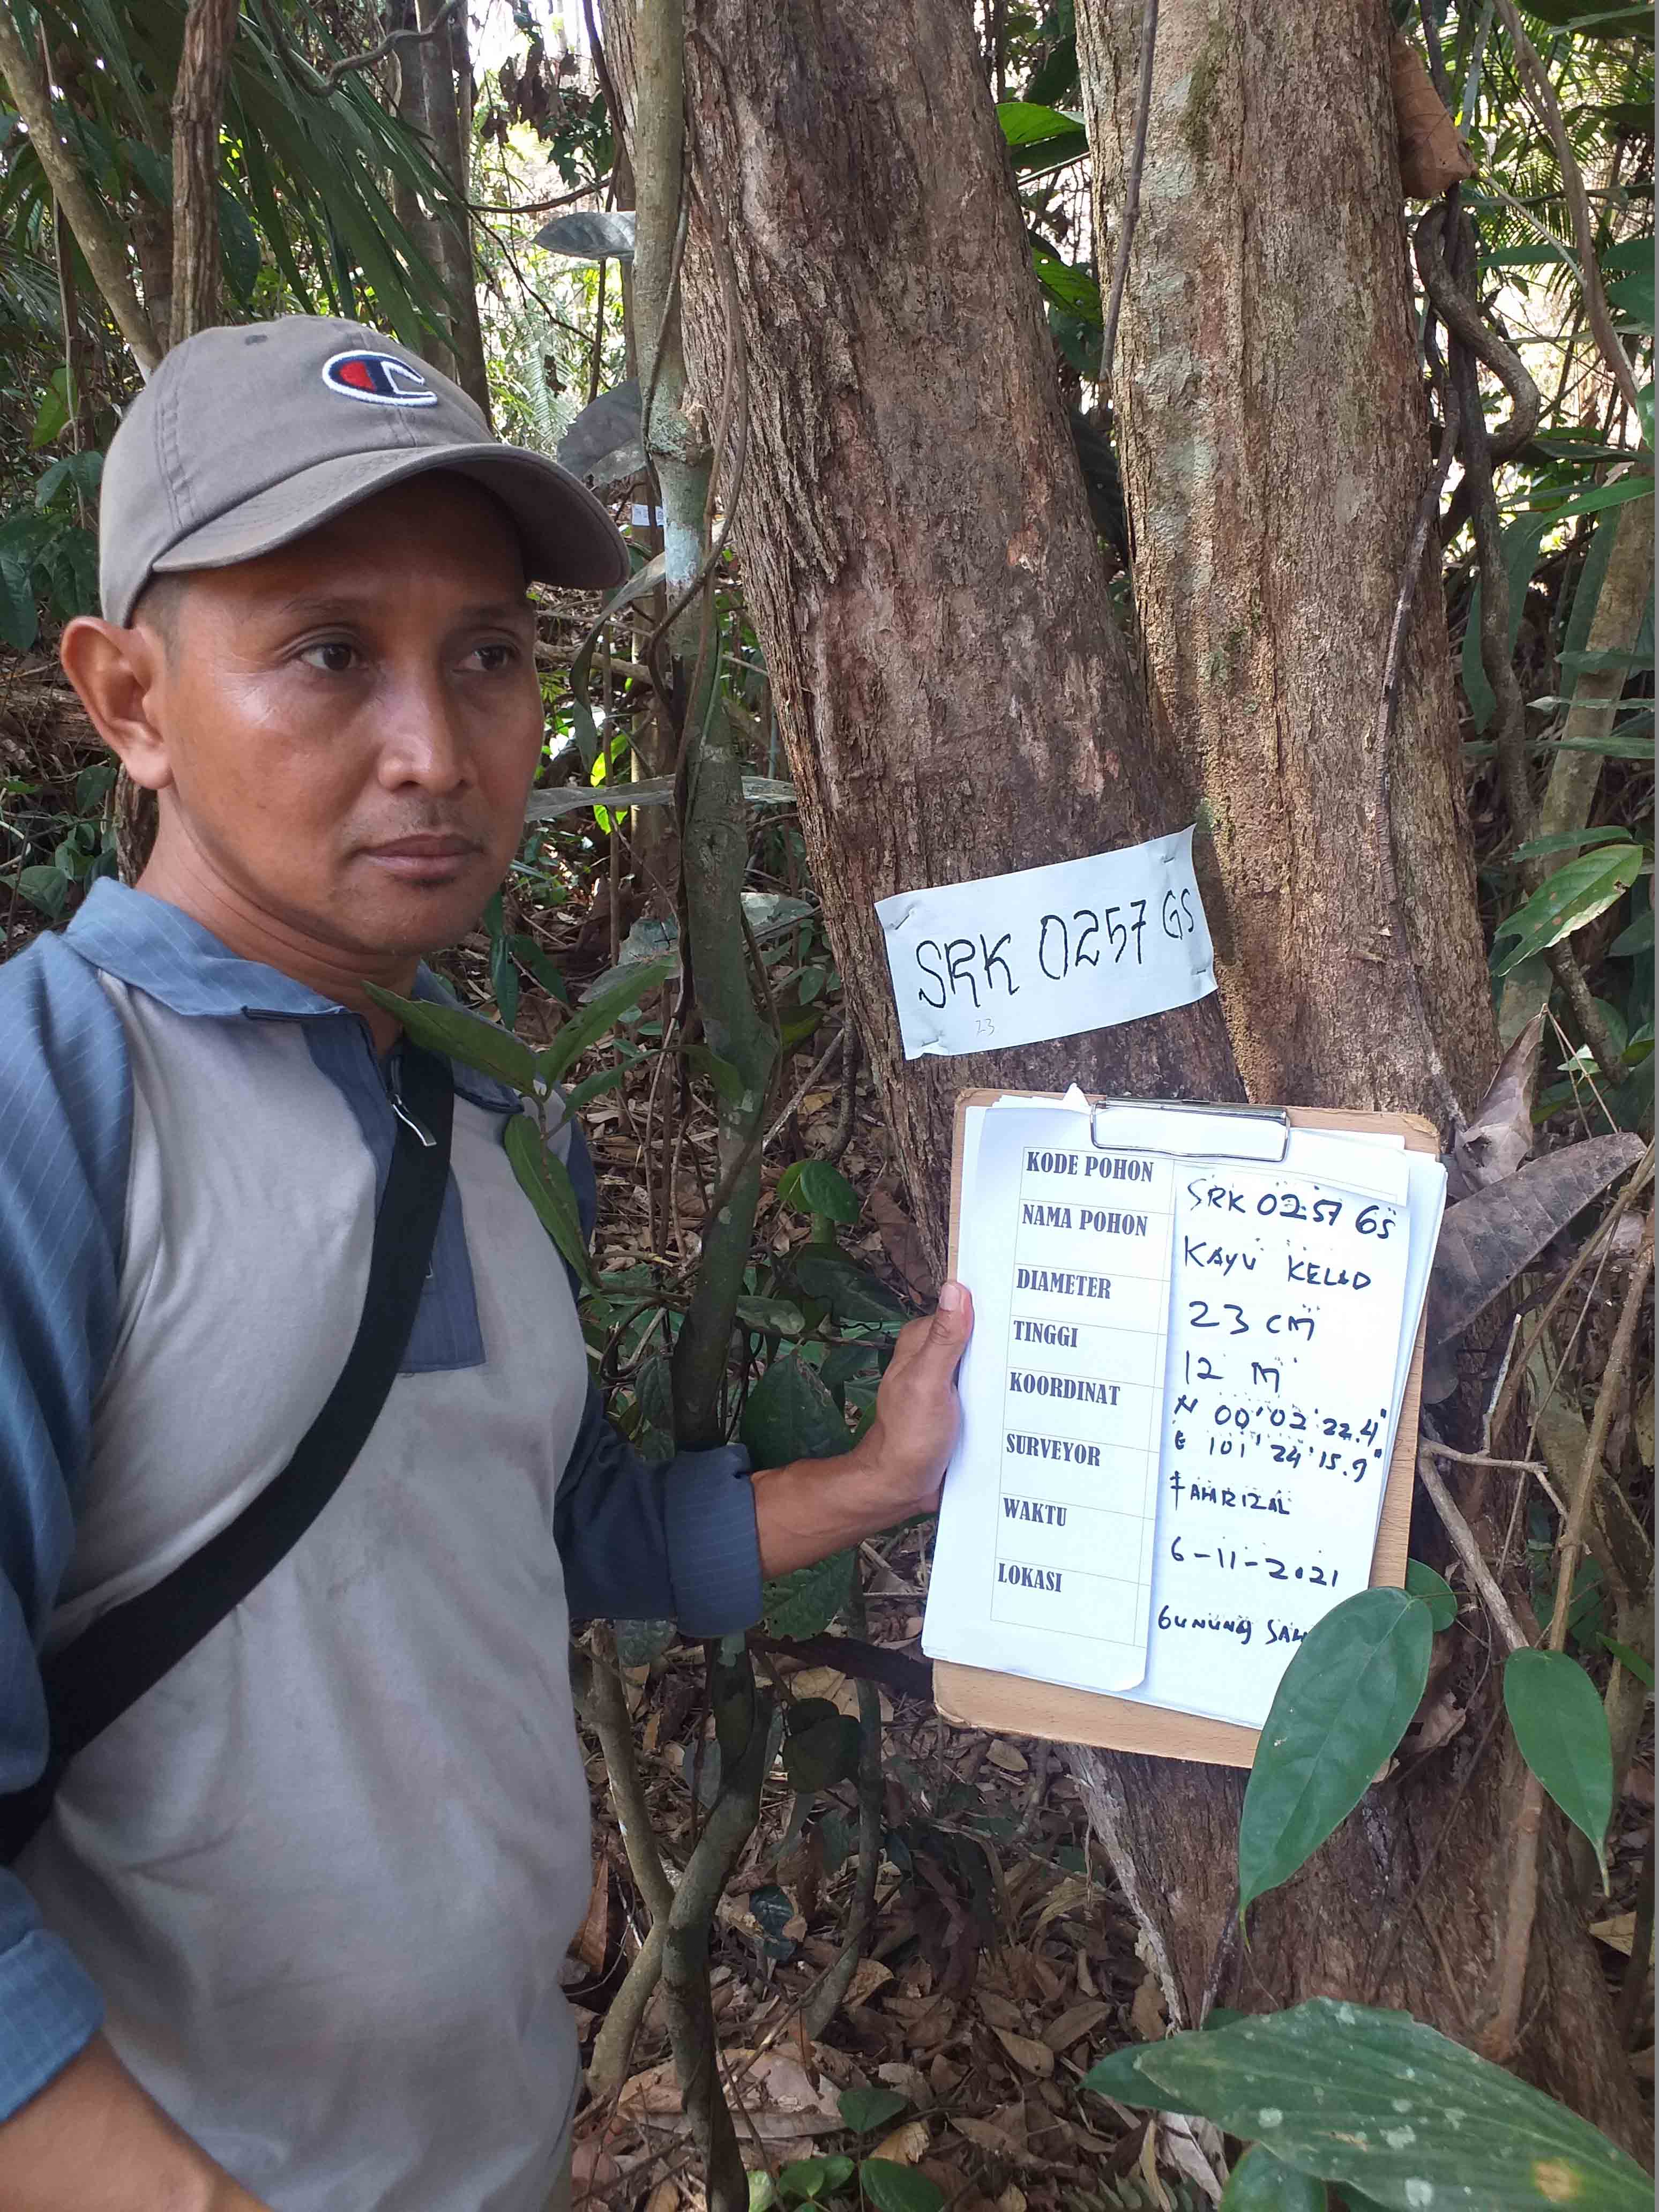 SRK 0257 GS
23
KODE POHON SRK 0257 GS
NAMA POHON KAYU KELAD
DIAMETER 23 CM
TINGGI 12 M
KOORDINAT N 00'02'22.4"
E 101'24'15.9"
SURVEYOR FAHRIZAL
WAKTU 6-11-2021
LOKASI GUNUNG